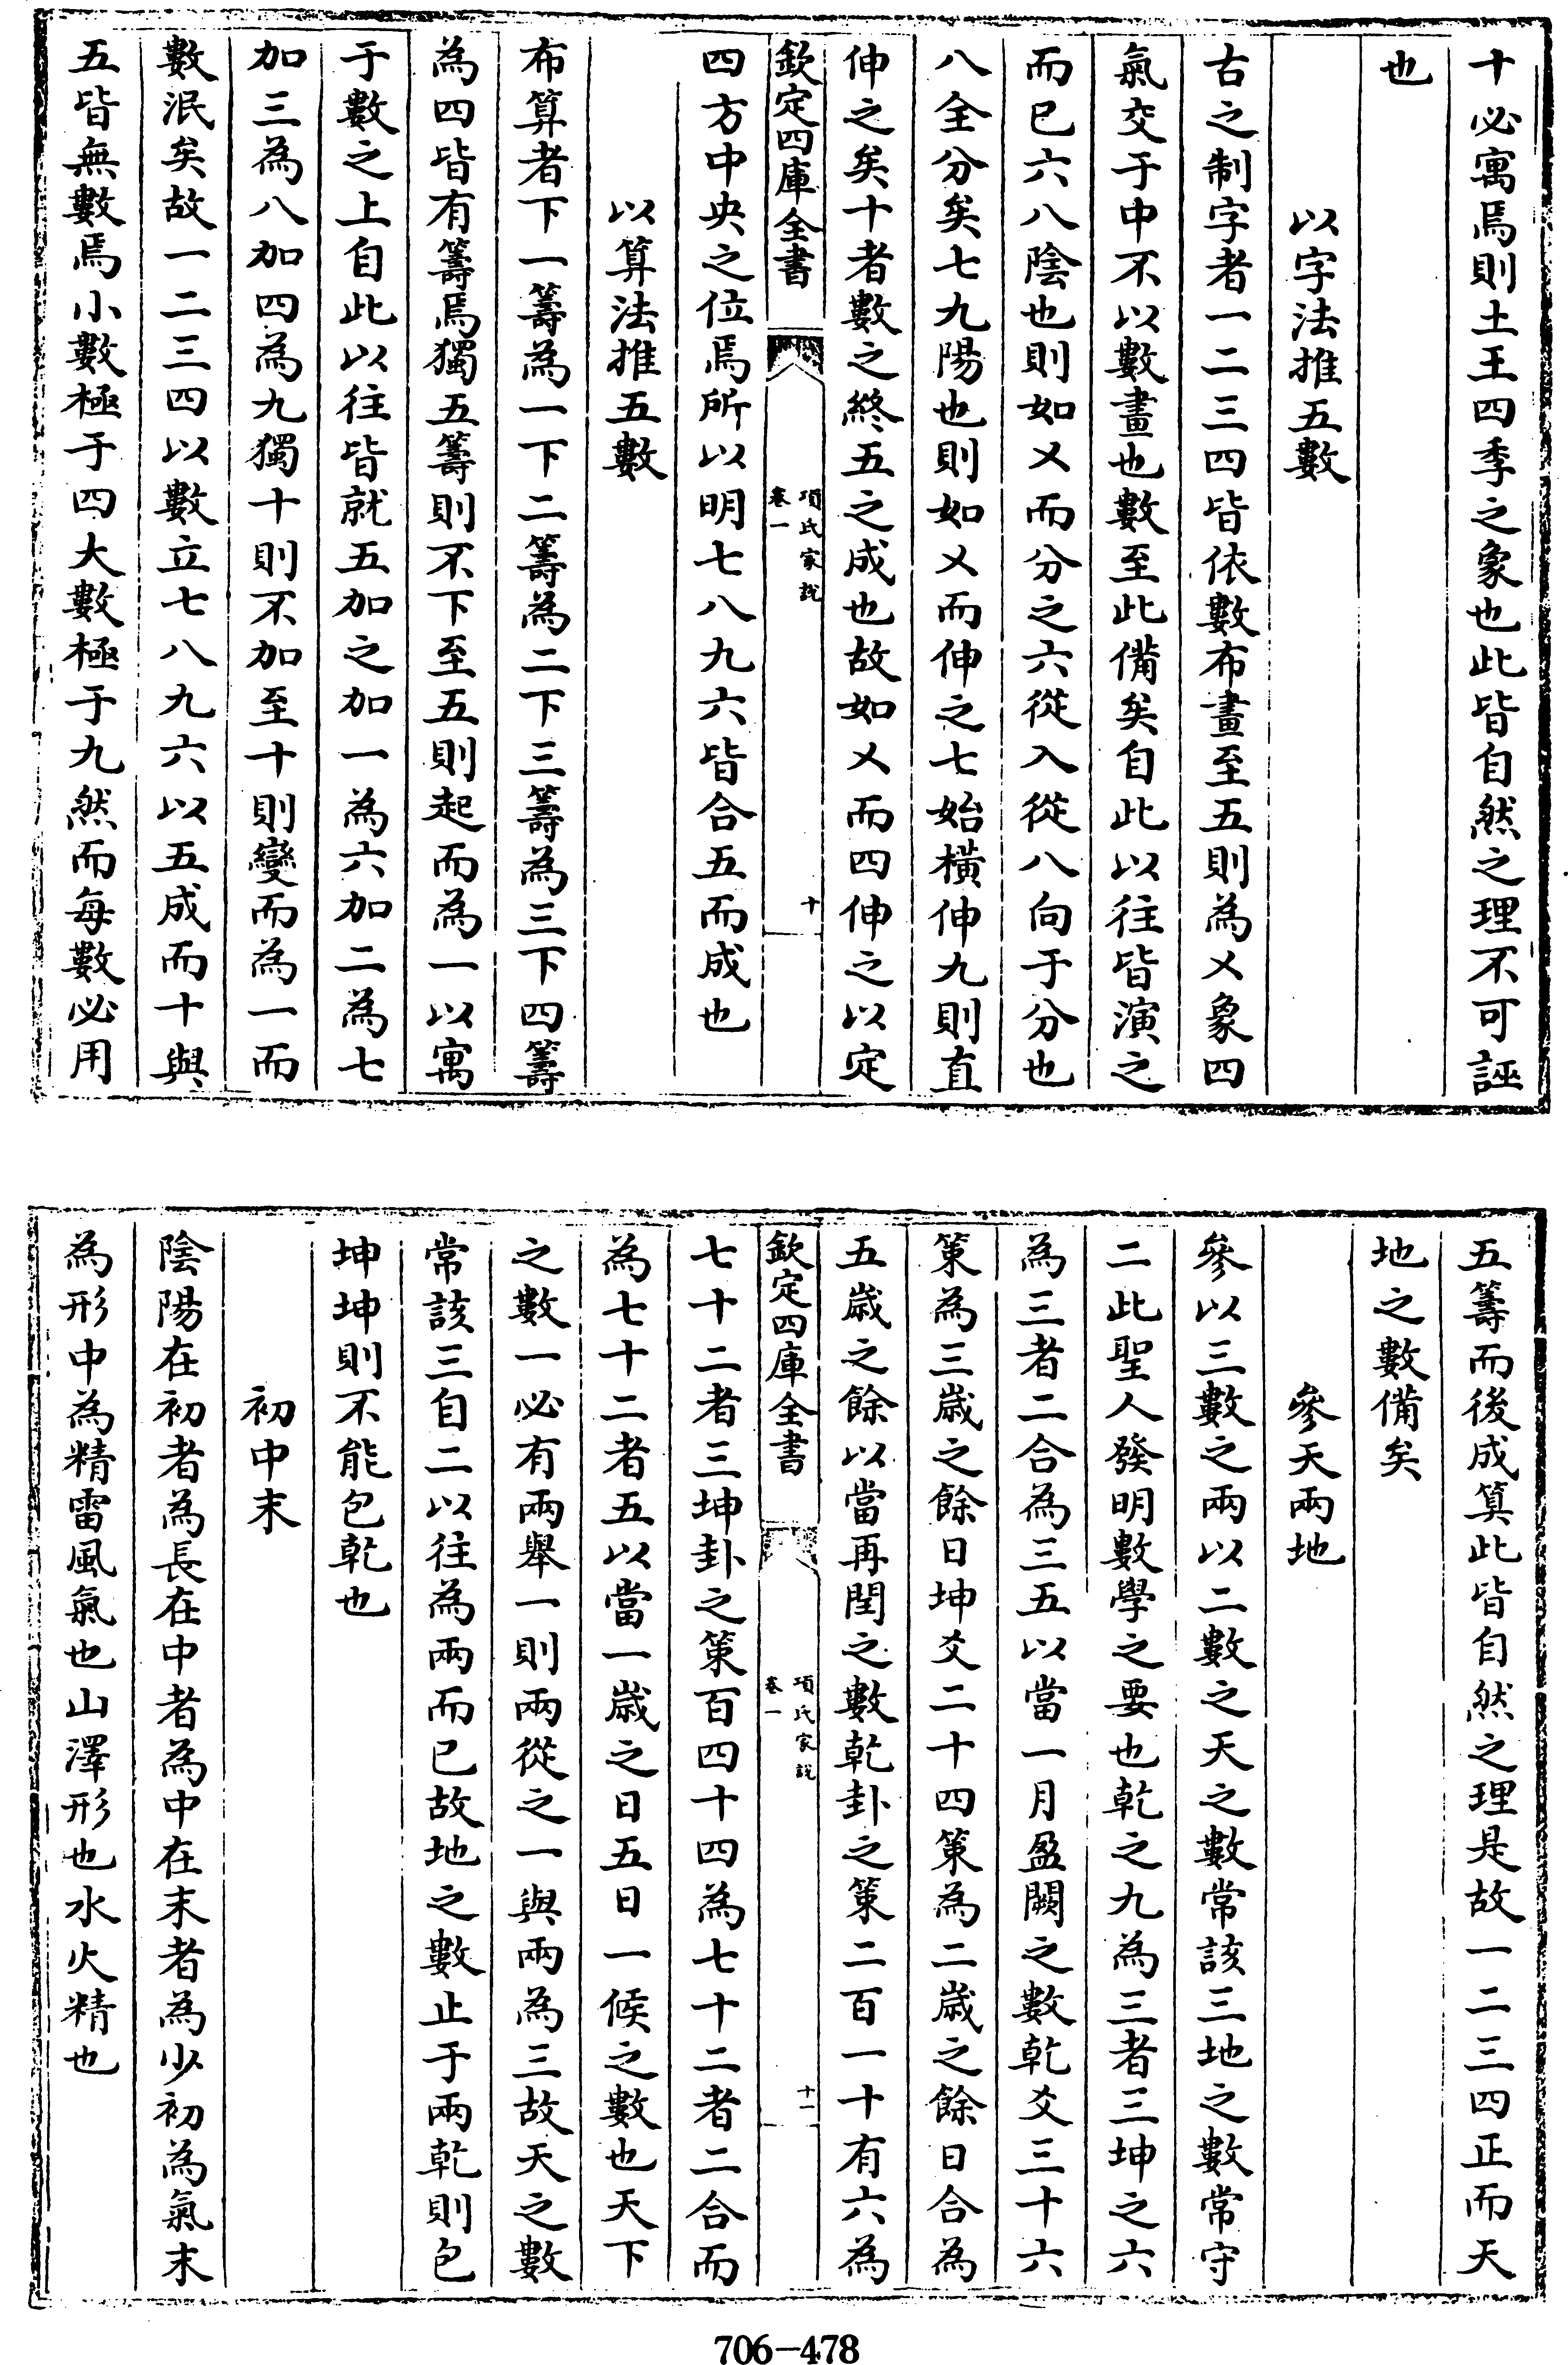 十必寓焉則土王四季之象也此皆自然之理不可誣
也
以字法推五數
古之制字者一二三四皆依數布畫至五則為㐅象四
氣交于中不以數畫也數至此備矣自此以往皆演之
而已六八陰也則如㐅而分之六從入從八向于分也
八全分矣七九陽也則如㐅而伸之七始橫伸九則直
伸之矣十者數之終五之成也故如㐅而四伸之以定
欽定四庫全書
項氏家說
卷一
十
四方中央之位焉所以明七八九六皆合五而成也
以算法推五數
布算者下一籌為一下二籌為二下三籌為三下四籌
為四皆有籌焉獨五籌則不下至五則起而為一以寓
于數之上自此以往皆就五加之加一為六加二為七
加三為八加四為九獨十則不加至十則變而為一而
數泯矣故一二三四以數立七八九六以五成而十與
五皆無數焉小數極于四大數極于九然而每數必用
五籌而後成算此皆自然之理是故一二三四正而天
地之數備矣
參天兩地
參以三數之兩以二數之天之數常該三地之數常守
二此聖人發明數學之要也乾之九為三者三坤之六
為三者二合為三五以當一月盈闕之數乾爻三十六
策為三歲之餘日坤爻二十四策為二歲之餘日合為
五歲之餘以當再閏之數乾卦之策二百一十有六為
欽定四庫全書
項氏家說
卷一
十一
七十二者三坤卦之策百四十四為七十二者二合而
為七十二者五以當一歲之日五日一候之數也天下
之數一必有兩舉一則兩從之一與兩為三故天之數
常該三自二以往為兩而已故地之數止于兩乾則包
坤坤則不能包乾也
初中末
陰陽在初者為長在中者為中在末者為少初為氣末
為形中為精雷風氣也山澤形也水火精也
706-478